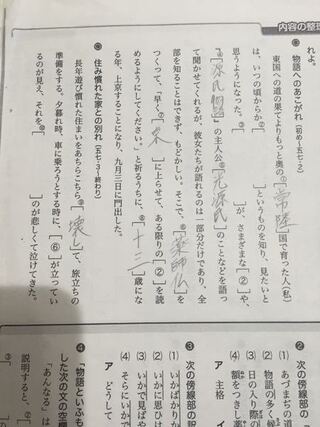 内容の整理
れよ。
● 物語へのあこがれ(初め~五七・2)
東国への道の果てよりもっと奥の①[常陸]国で育った人(私)
は、いつの頃からか②[ ]というものを知り、見たいと
思うようになった。③[ ]が、さまざまな[②]や、
④[源氏物語]の主人公⑤[光源氏]のことなどを語っ
て聞かせてくれるが、彼女たちが語れるのは一部分だけであり、全
部を知ることはできず、もどかしい。そこで、⑥[薬師仏]を
つくって、「早く⑦[京]に上らせて、ある限りの[②]を読
めるようにしてください。」と祈るうちに、⑧[十三]歳にな
る年、上京することになり、九月三日に門出した。
● 住み慣れた家との別れ(五七・3~終わり)
長年遊び慣れた住まいをあちらこちら⑨[壊し]て、旅立ちの
準備をする。夕暮れ時、車に乗ろうとする時に、[⑥]が立ってい
るのが見え、それを⑩[ ]のが悲しくて泣けてきた。
❷ 次の傍線部の
(1) あづまぢの道
(2) 物語の多く候
(3) 日の入り際の
(4) 額をつきし薬
ア 主格 イ
❸ 次の傍線部の訳
(1) いかばかりか
(2) いかに思ひけ
(3) いかで見ばや
(4) そらにいかで
ア どうして
❹ 「物語といふも
した次の文の空欄
「あんなる」は
説明すると、[②
③[